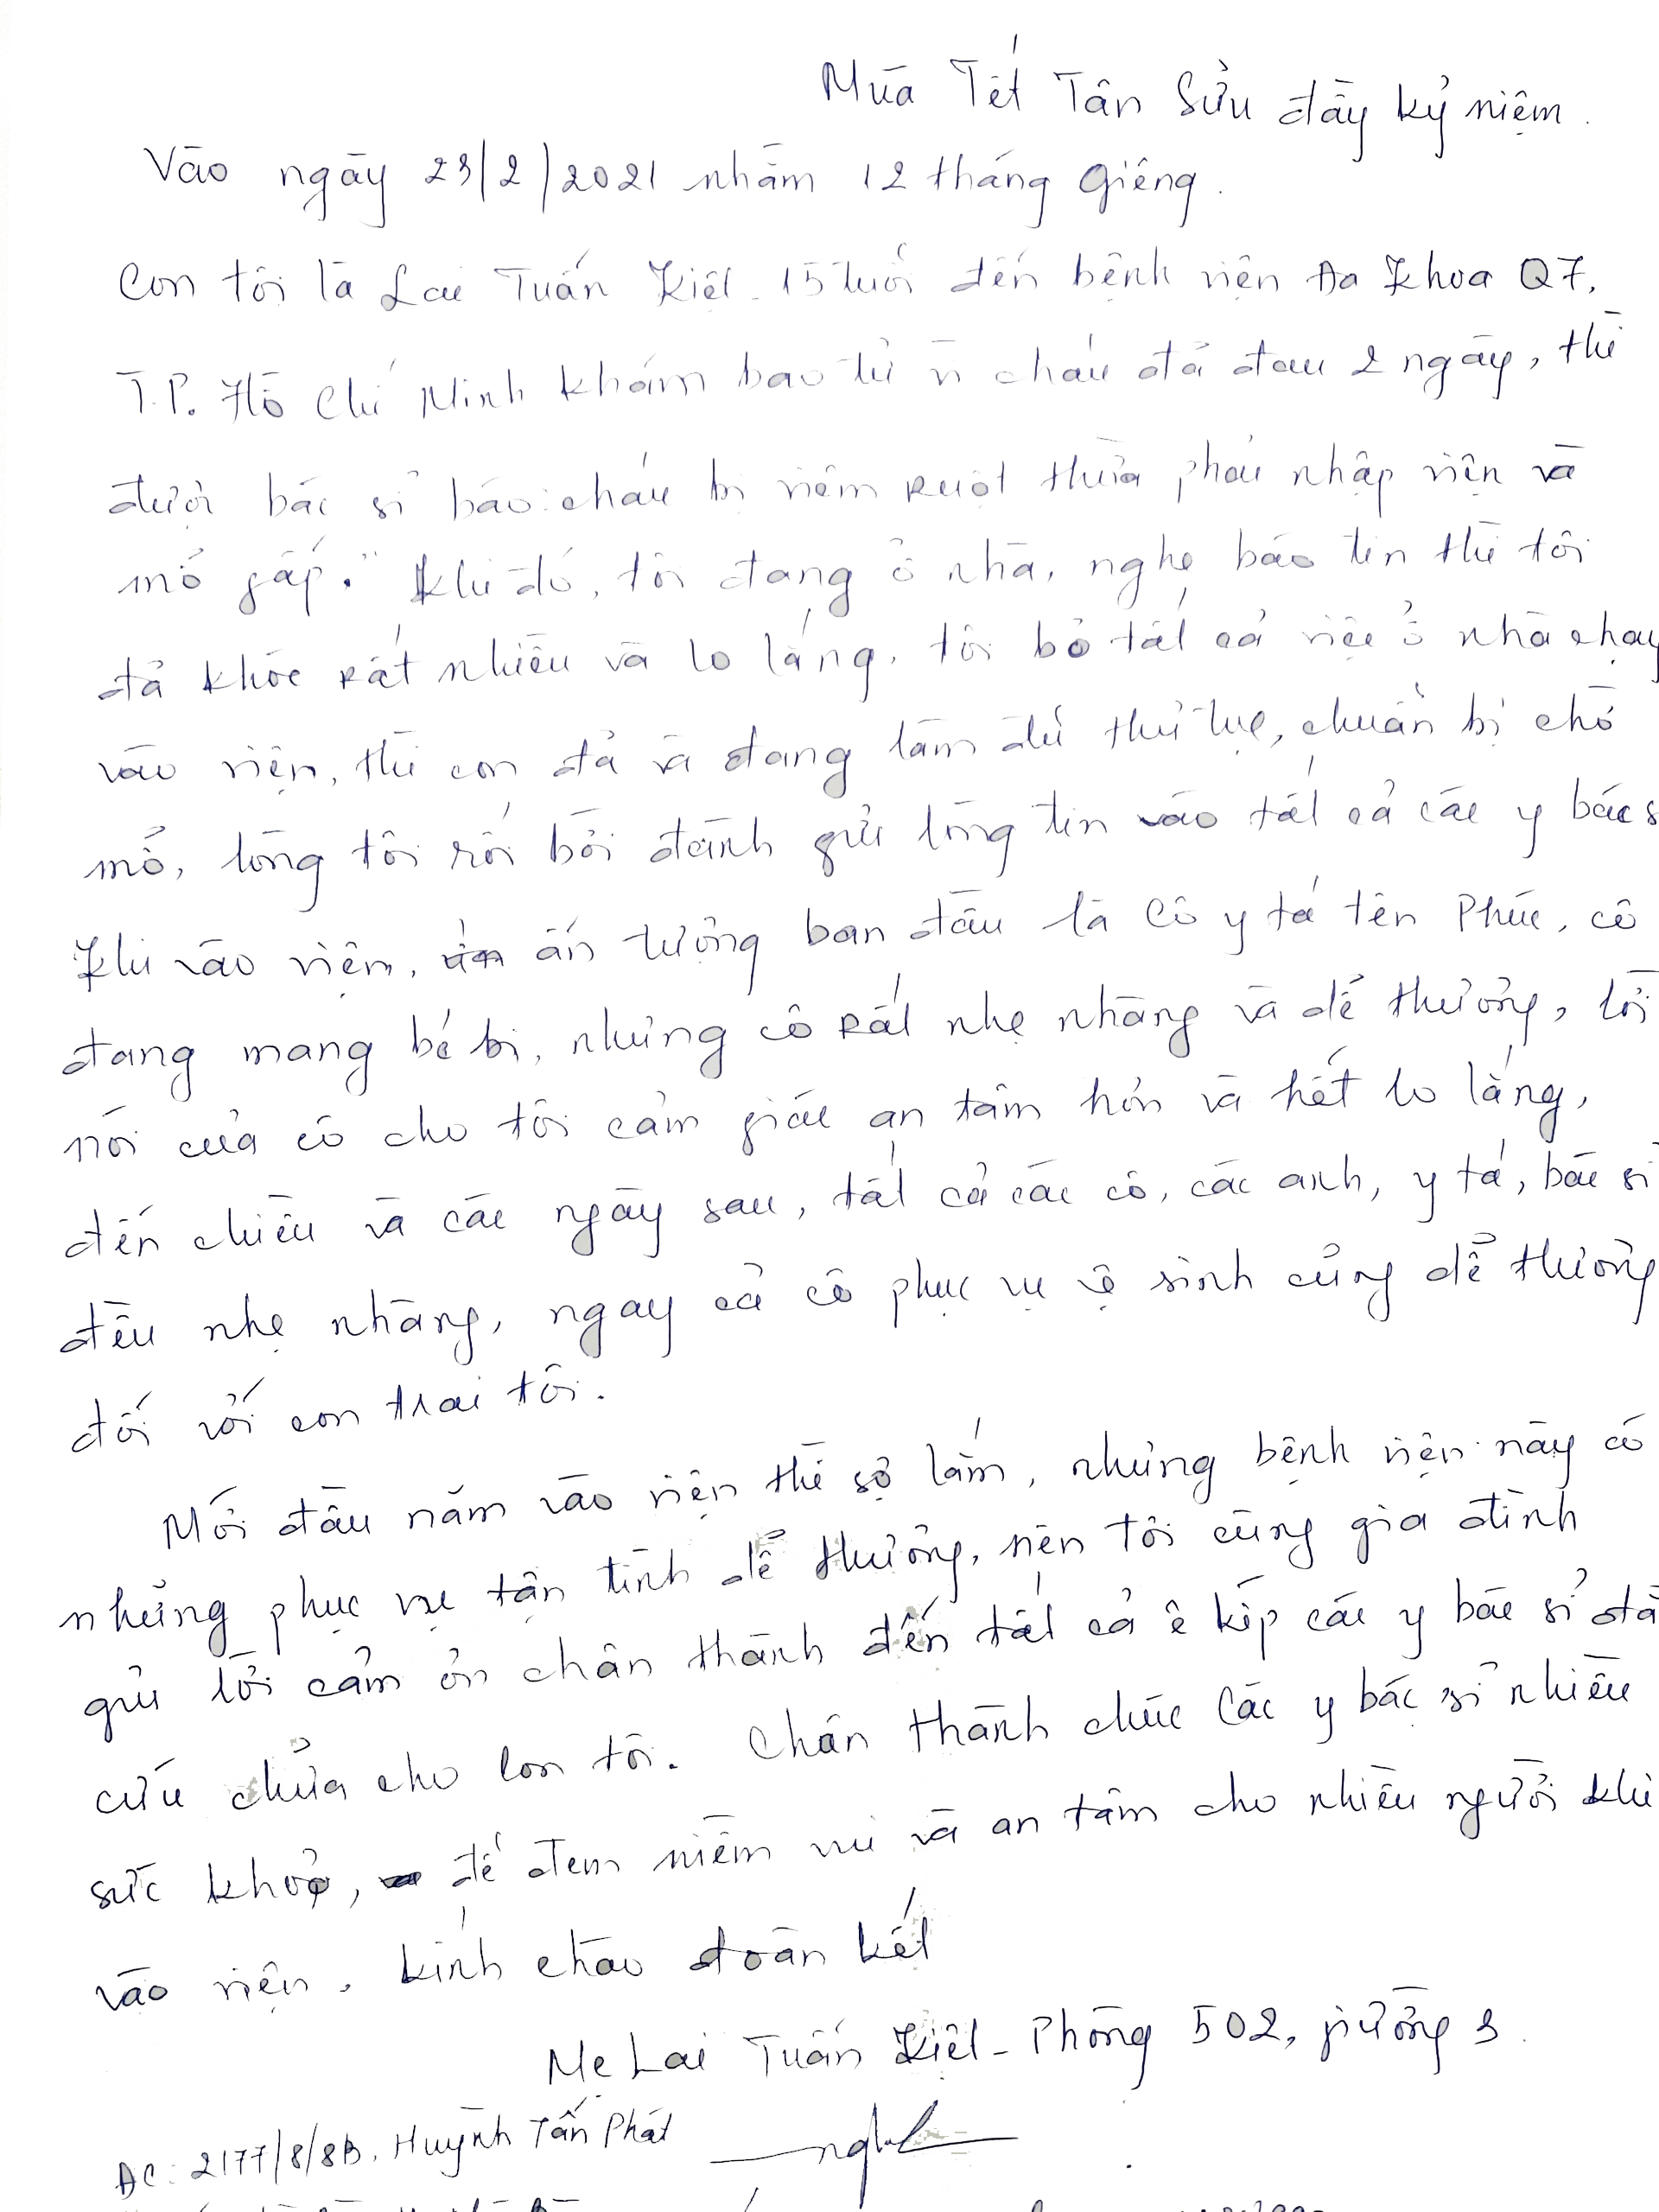 Mùa Tết Tân Sửu đầy kỷ niệm.
Vào ngày 23/2/2021 nhằm 12 tháng giêng.
Con tôi là Lai Tuấn Kiệt 15 tuổi đến bệnh viện Đa Khoa Q7,
T.P. Hồ Chí Minh khám bao tử vì cháu đã đau 2 ngày, thì
được bác sĩ báo: cháu bị viêm ruột thừa phải nhập viện và
mổ gấp." Khi đó, tôi đang ở nhà, nghe báo tin thì tôi
đã khóc rất nhiều và lo lắng, tôi bỏ tất cả việc ở nhà chạy
vào viện, thì con đã và đang làm đủ thủ tục, chuẩn bị chờ
mổ, lòng tôi rối bời đành gửi lòng tin vào tất cả các y bác s
Khi vào viện, ấn tượng ban đầu là cô y tá tên Phúc, cô
đang mang bé bi, nhưng cô rất nhẹ nhàng và dễ thương, lời
nói của cô cho tôi cảm giác an tâm hơn và hết lo lắng,
đến chiều và các ngày sau, tất cả các cô, các anh, y tá, bác sĩ
đều nhẹ nhàng, ngay cả cô phục vụ vệ sinh cũng dễ thương
đối với con trai tôi.
Mới đầu năm vào viện thì sợ lắm, nhưng bệnh viện này có
những phục vụ tận tình dễ thương, nên tôi cùng gia đình
gửi lời cảm ơn chân thành đến tất cả ê kíp các y bác sĩ đã
cứu chữa cho con tôi. Chân thành chúc các y bác sĩ nhiều
sức khoẻ, để đem niềm vui và an tâm cho nhiều người khi
vào viện. Kính chào đoàn kết
Mẹ Lai Tuấn Kiệt - Phòng 502, giường 3.
ĐC: 2177/8/8B, Huỳnh Tấn Phát